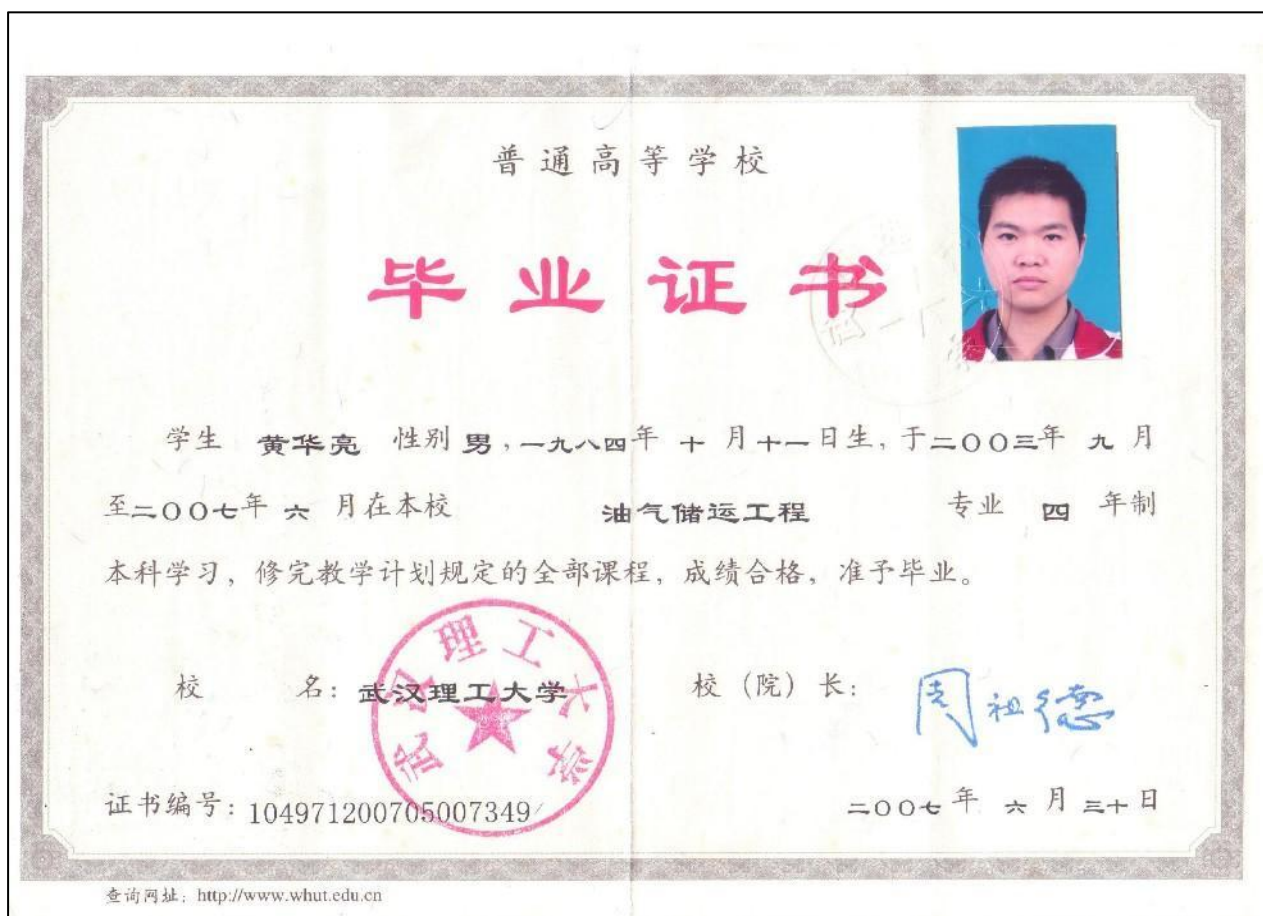 普通高等学校
毕业证书
学生 黄华亮 性别 男，一九八四年 十 月十一日生，于二〇〇三年 九 月
至二〇〇七年 六 月在本校 油气储运工程 专业 四 年制
本科学习，修完教学计划规定的全部课程，成绩合格，准予毕业。
校 名：武汉理工大学 校（院）长：周祖德
武汉理工大学
证书编号：104971200705007349
二〇〇七年 六 月 三十日
查询网址：http://www.whut.edu.cn